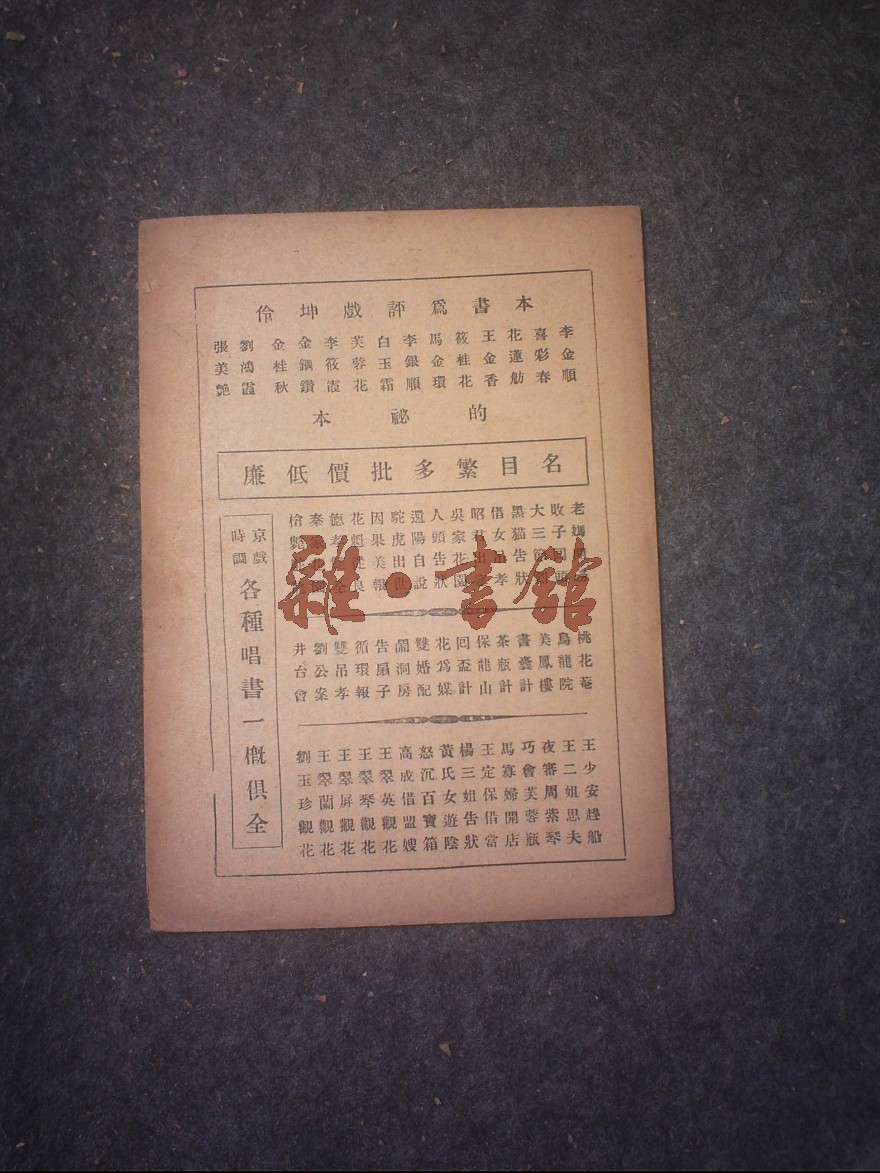 本書為評戲坤伶
李金順
喜彩春
花蓮舫
王金香
筱桂花
馬金環
李銀順
白玉霜
芙蓉花
李筱霞
金鋼鑽
金桂秋
劉鴻霞
張美艷
的祕本
名目繁多批價低廉
京戲時調
各種唱書一概俱全
老媽開嗙
敗子回頭
大三節烈
黑猫告狀
借女吊孝
昭君出塞
吳家花園
人頭告狀
還陽自說
駝虎出世
因果美報
花魁從良
雜·書館
桃花菴
烏龍院
美鳳樓
書囊計
茶瓶計
保龍山
回盃計
花為媒
雙婚配
鬧洞房
告扇子
循環報
雙吊孝
劉公案
井台會
王少安趕船
王二姐思夫
夜審周紫琴
巧會芙蓉瓶
馬寡婦開店
王定保借當
楊三姐告狀
黃氏女遊陰
怒沉百寶箱
高成借盟嫂
王翠英觀花
王翠琴觀花
王翠屏觀花
王翠蘭觀花
劉玉珍觀花